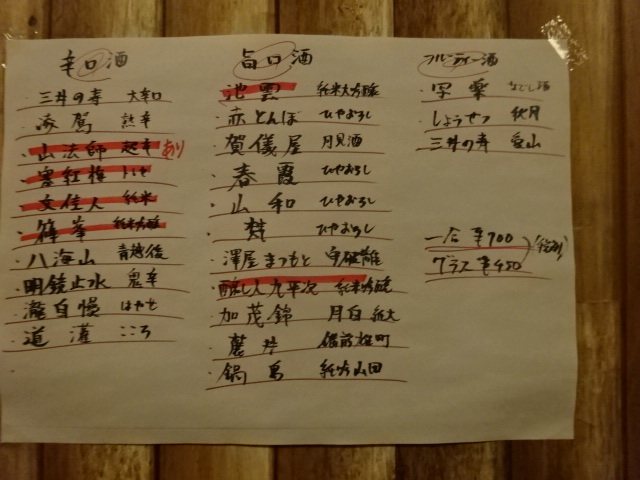 辛口酒
・三井の寿 大辛口
・浜駕 熟辛
・山法師 超辛 あり
・雪紅梅
・文佳人 純米
・篠峯 純米吟醸
・八海山 青越後
・明鏡止水 鬼辛
・瀧自慢 はやせ
・道灌 こころ
旨口酒
・池雲 純米大吟醸
・赤とんぼ ひやおろし
・賀儀屋 月見酒
・春霞 ひやおろし
・山和 ひやおろし
・梵 ひやおろし
・澤屋まつもと 守破離
・醸し人九平次 純米吟醸
・加茂錦 月白 純大
・蘑井 備前雄町
・鍋島 純吟山田
フルーティー酒
・写楽 なごし酒
・しょうせつ 秋月
・三井の寿 愛山
一合 ¥700
グラス ¥450
(税別)